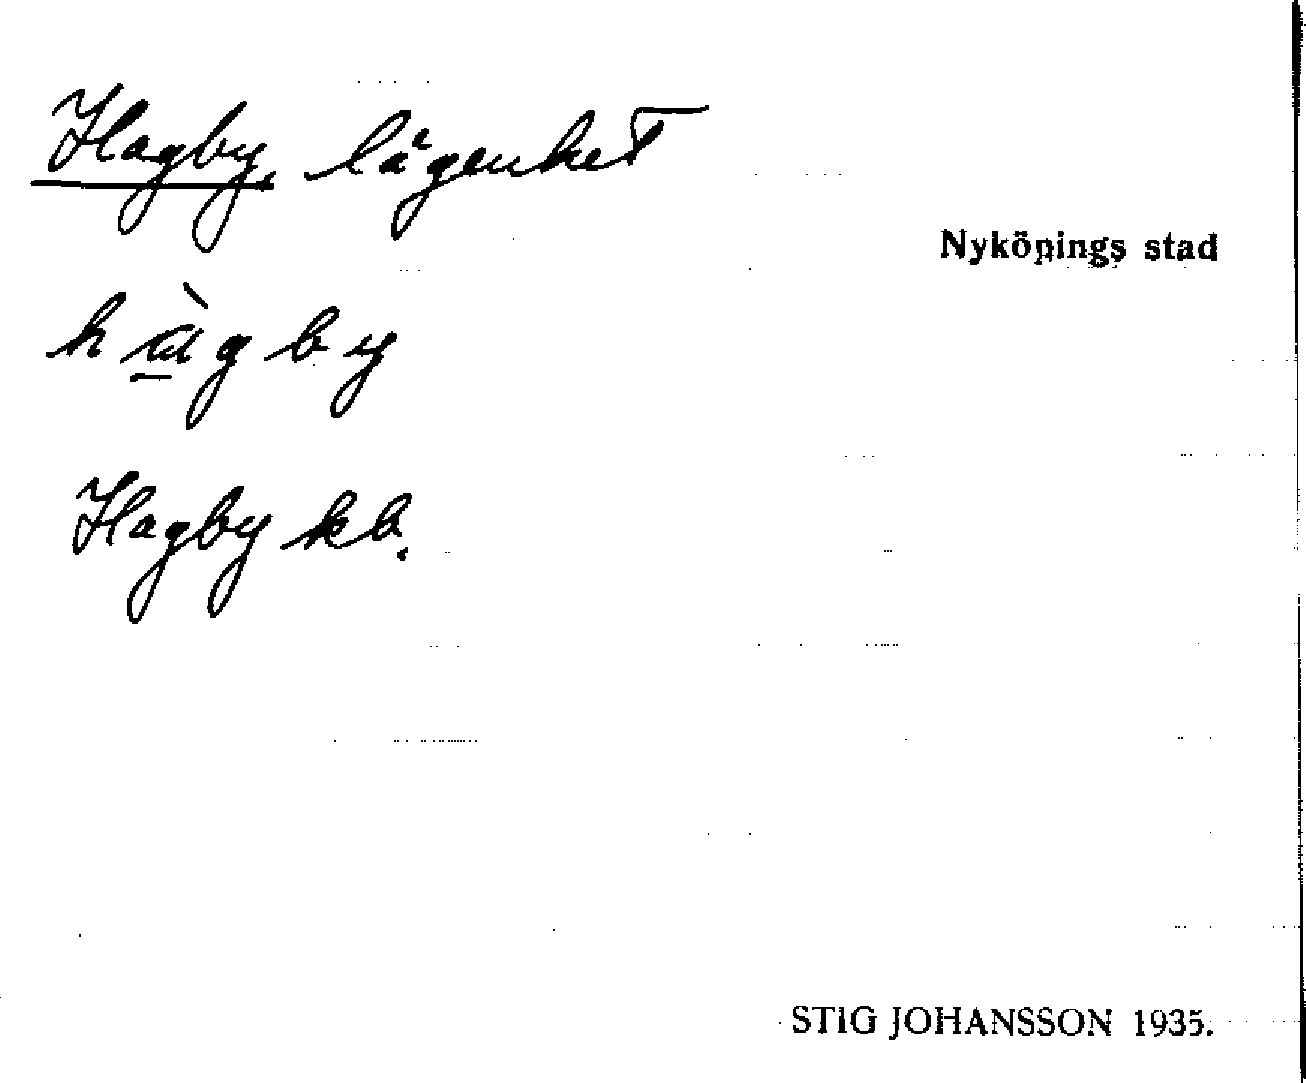 Hagby, lägenhet
Nyköpings stad
hàgby
Hagby kb.
STIG JOHANSSON 1935.